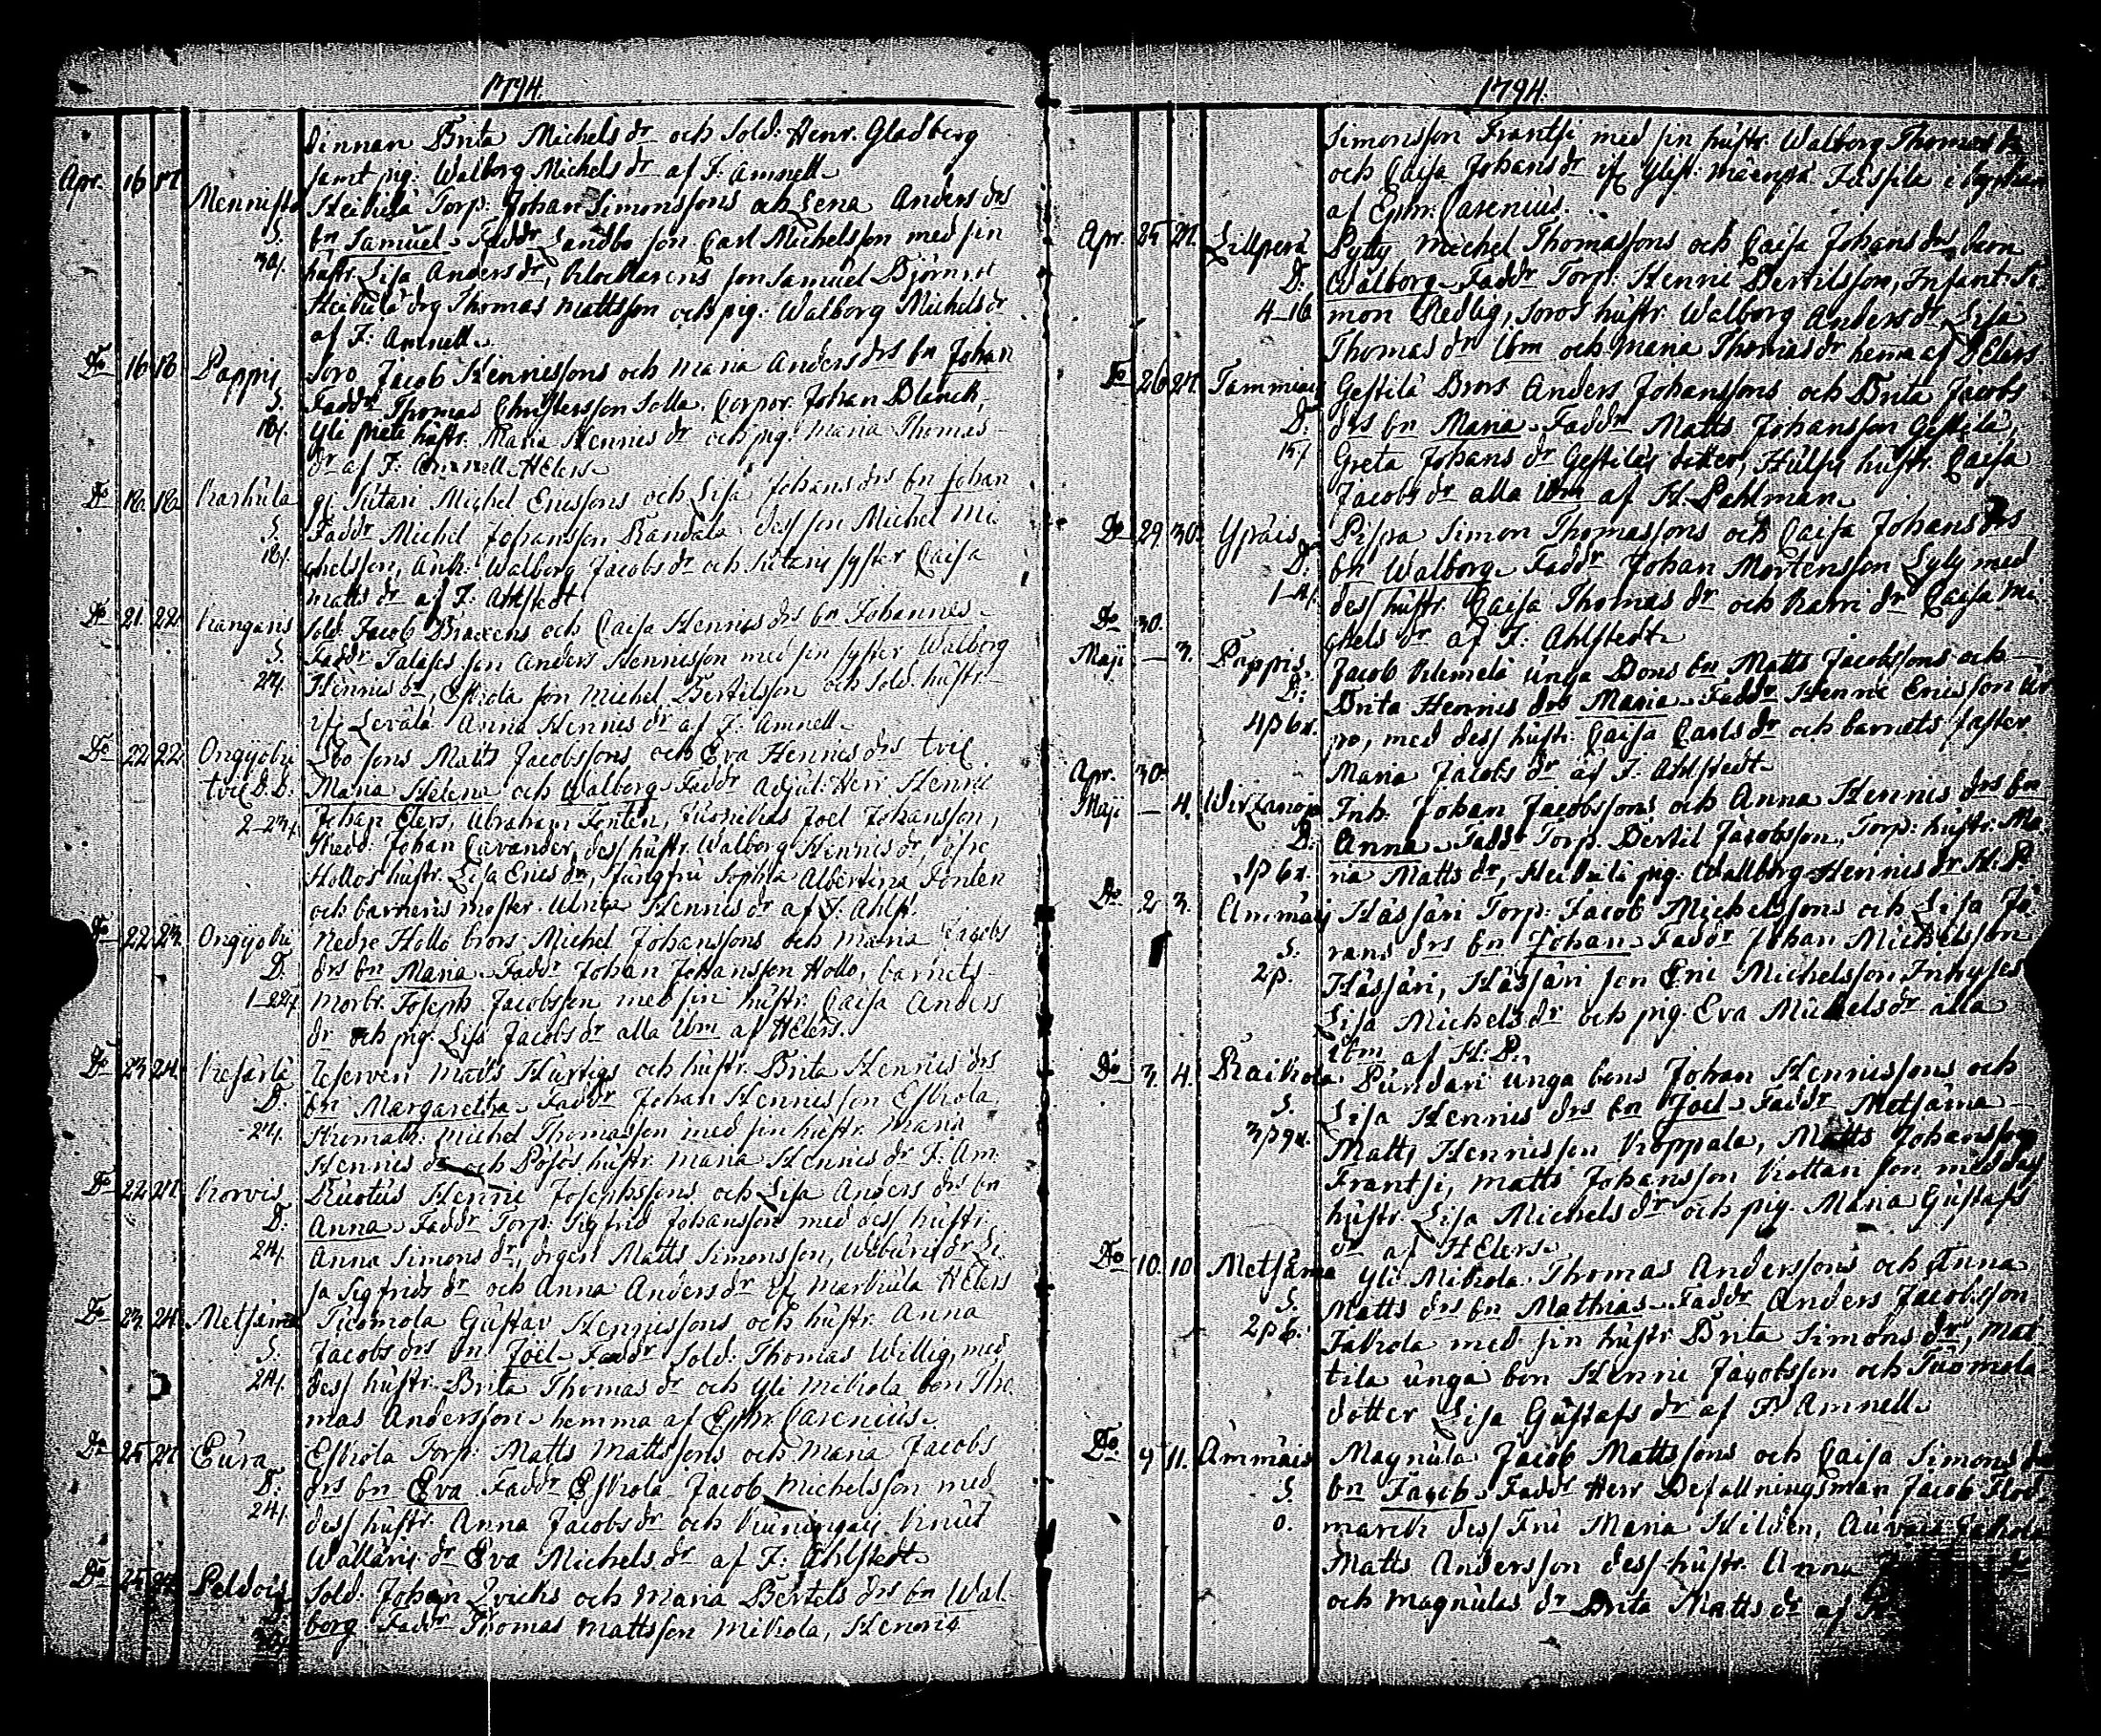 1794.
Qinnan Brita Michels dr och Sold: Henr. Gladberg
samt pig. Walborg Michels dr af F. Amnell.
Apr. 16 17. Mennisto Heikilä Torp. Johan Simonssons och Lena Anders drs
S. bn Samuel. Faddr Landbo son Carl Michelsson med sin
30/. hustr. Lisa Anders dr, Klockarens son Samuel Björn
Heikilä drg Thomas Mattsson och pig. Walborg Michels dr
af F. Amnell.
Do 16 18 Pappis Soro Jacob Hennissons och Maria Anders drs bn Johan
S. Faddr Thomas Christersson Solla. Corpor. Johan Blanck,
18/. Yli hustr. Maria Hennis dr och pig. Maria Thomas
dr af F. Amnell HElers.
Do 18. 18. Karhula gl Michel Ericssons och Lisa Johans drs bn Johan
S. Faddr Michel Johansson Randala dess son Michel Mi
18/. chelsson, Enk. Walborg Jacobs dr och syster Caisa
Matts dr af F. Ahlstedt
Do 21. 22. Kangaris Sold. Jacob och Caisa Hennis drs bn Johannes.
S. Faddr son Anders Hennisson med sin syster Walborg
24/. Hennis dr, Eskola son Michel Bertilsson och Sold. hustr
Anna Hennis dr af F. Amnell.
Do 22 22 Ongyobu sons Matts Jacobssons och Eva Hennis drs tvil
tvil D. D. Maria Helena och Walborg Faddr Adjut: Herr Henric
2-23/. Johan Elers, Abraham Fonten, Joel Johansson,
Johan Cavander, dess hustr. Walborg Hennis dr, öfre
Hollos hustr. Lisa Erics dr, Jungfru Sophia Albertina Fonten
och barnens moster Hennis dr af F. Ahlst.
Do 22 23. Ongyobu Nedre Hollo brors Michel Johanssons och Maria Jacobs
D. drs bn Maria. Faddr Johan Johansson Hollo, barnets
1-22/. Morbr. Joseph Jacobsson med sin hustr. Caisa Anders
dr och pig. Lisa Jacobs dr alla ibm af HElers.
Do 23 24. Reserven Matts Hurtigs och hustr. Brita Hennis drs
D. bn Margaretha. Faddr Johan Hennisson Eskola
24/. Michel Thomasson med sin hustr. Maria
Hennis dr och hustr. Maria Hennis dr F. Am.
Do 22 24. Korvis Ruotus Henric Josephssons och Lisa Anders drs bn
D. Anna. Faddr Torp. Sigfrid Johansson med dess hustr.
24/. Anna Simons dr, drgen Matts Simonsson, dr Li
sa Sigfrids dr och Anna Anders dr if Markula HElers
Do 23. 24. Metsäma Tuomola Gustav Hennissons och hustr. Anna
S. Jacobs drs bn Joel Faddr Sold. Thomas Willig, med
24/. dess hustr. Brita Thomas dr och Yli Mikola bon Tho
mas Andersson hemma af Ephr. Carenius.
Do 25 27. Eura Eskola Torp. Matts Mattssons och Maria Jacobs
D. drs bn Eva. Faddr Eskola Jacob Michelsson med
24/. dess hustr. Anna Jacobs dr och Kuningas Knut
dr Eva Michels dr af F. Ahlstedt.
Do Peldois Sold. Johan Qvicks och Maria Bertels drs bn Wal
borg. Faddr Thomas Mattsson Mikola, Hennis
1794.
Simonsson Frantsi med sin hustr. Walborg Thomas dr
och Caisa Johans dr
af Ephr. Carenius.
Apr. 25 27. Lillperä Pytty Michel Thomassons och Caisa Johans drs barn
D. Walborg. Faddr Torp. Henric Bertilsson, Infant. Si
4-16 mon Redlig, Soros hustr. Walborg Anders dr, Lisa
Thomas dr ibm och Maria Thomas dr hema af HElers
Do 26 27. Tammiais Gestilä Brors Anders Johanssons och Brita Jacobs
D. drs bn Maria. Faddr Matts Johansson Gestilä,
15/. Greta Johans dr Gestiläs dotter, hustr. Caisa
Jacobs dr alla ibm af H. Pahlman.
Do 29. 30. Yräis Simon Thomassons och Caisa Johans drs
D. bn Walborg. Faddr Johan Mårtensson Lyly med
dess hustr. Caisa Thomas dr och Karri dr Caisa Mi
Do 30. chels dr af F. Ahlstedt.
Maji — 3. Pappis Jacob Klemelä unga Bons bn Matts Jacobssons och
D. Brita Hennis drs Maria. Faddr Henric Ericsson Ar
ro, med dess hustr. Caisa Carls dr och barnets faster
Maria Jacobs dr af F. Ahlstedt.
Apr. 30.
Maji — 4. Wirzanoja Inh. Johan Jacobssons och Anna Hennis drs bn
D. Anna. Faddr Torp. Bertil Jacobsson, Torp: hustr. Ma
ria Matts dr, Heikilä pig. Walborg Hennis dr H. P.
Do 2 3. Ammäis Hässäri Torp. Jacob Michelssons och Lisa Jö
S. rans drs bn Johan. Faddr Johan Michelsson
2p. Hässäri, Hässäri son Eric Michelsson, Inhyses
Lisa Michels dr och pig. Eva Michels dr alla
ibm af H. P.
Do 3. 4. Raikola Pundari unga bons Johan Hennissons och
S. Lisa Hennis drs bn Joel. Faddr Metsäma
Matts Hennisson Kroppala, Matts Johansson
Frantsi, Matts Johansson Kottari son med dess
hustr. Lisa Michels dr och pig. Maria Gustafs
dr af HElers.
Do 10. 10 Metsäma Yli Mikola Thomas Anderssons och Anna
S. Matts drs bn Mathias. Faddr Anders Jacobsson
Fakola med sin hustr. Brita Simons dr, Mat
tila unga bon Henric Jacobsson och Tuomola
dotter Lisa Gustafs dr af F. Amnell.
Do 9 11. Ammäis Magnula Jacob Mattssons och Caisa Simons dr
S. bn Jacob. Faddr Herr Befallningsman Jacob Flod
0. marck dess Fru Maria Hilden,
Matts Andersson dess hustr. Anna
och Magnulas dr Brita Matts dr af